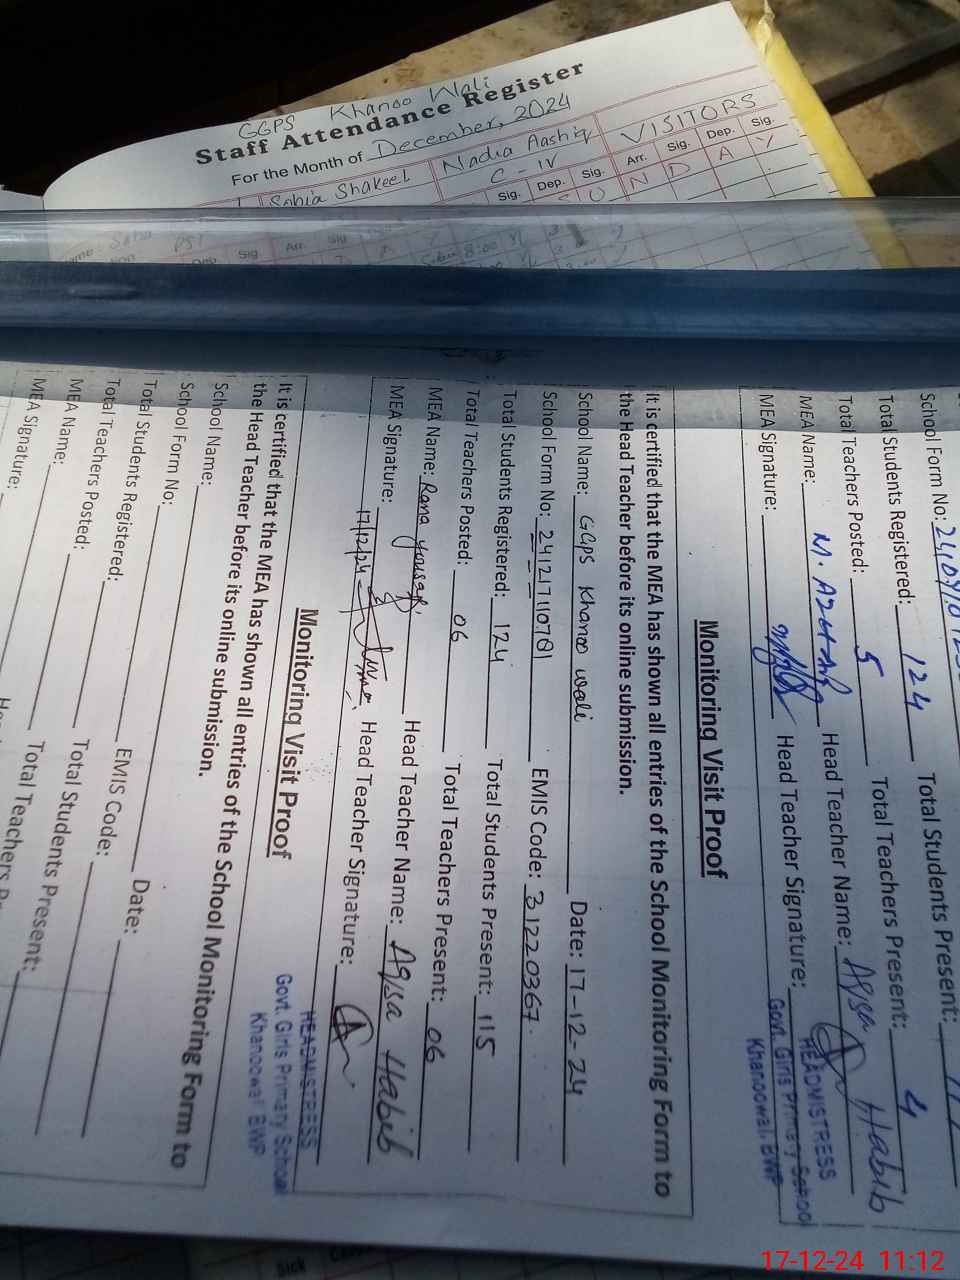 GGPS Khanoo Wali
Staff Attendance Register
For the Month of December, 2024
Sobia Shakeel Nadia Aashiq VISITORS
C - IV
Sig. Dep. Sig. Arr. Sig. Dep. Sig.
S U N D A Y
Sig Arr. Sig
School Form No:
Total Students Registered: 124 Total Students Present:
Total Teachers Posted: 5 Total Teachers Present: 4
MEA Name: Head Teacher Name: Aqsa Habib
MEA Signature: Head Teacher Signature:
HEADMISTRESS
Govt. Girls Primary School
Khanoowali BWP
Monitoring Visit Proof
It is certified that the MEA has shown all entries of the School Monitoring Form to
the Head Teacher before its online submission.
School Name: GGPS Khanoo wali Date: 17-12-24
School Form No: 24121710781 EMIS Code: 31220367
Total Students Registered: 124 Total Students Present: 115
Total Teachers Posted: 06 Total Teachers Present: 06
MEA Name: Rana yousaf Head Teacher Name: Aqsa Habib
MEA Signature: 17/12/24 Head Teacher Signature:
HEADMISTRESS
Govt. Girls Primary School
Khanoowali BWP
Monitoring Visit Proof
It is certified that the MEA has shown all entries of the School Monitoring Form to
the Head Teacher before its online submission.
School Name: Date:
School Form No: EMIS Code:
Total Students Registered: Total Students Present:
Total Teachers Posted: Total Teachers
MEA Name:
MEA Signature:
Sick
17-12-24 11:12